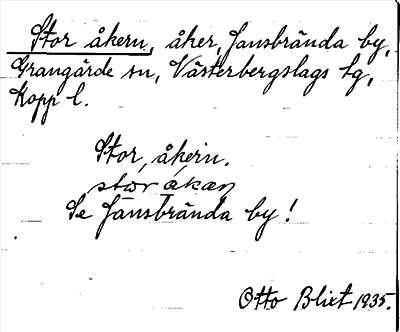 Stor åkern, åker, Jansbrända by,
Grangärde sn, Västerbergslags tg,
Kopp l.
Stor, åkern.
stor åkan
Se Jänsbrända by!
Otto Blixt 1935.